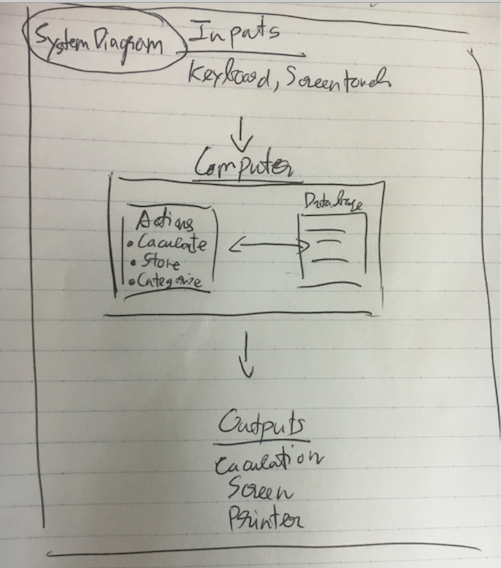 System Diagram
Inputs
Keyboard, Screentouch
Computer
Actions
• Caculate
• Store
• Categorise
Database
Outputs
Caculation
Screen
Printer